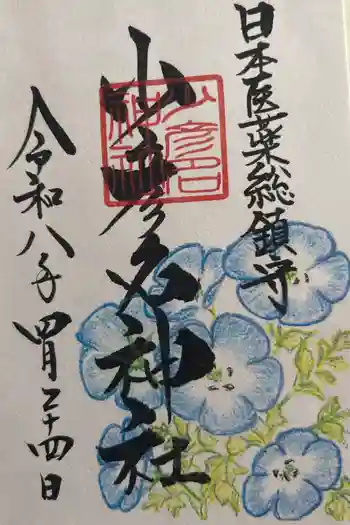 日本医薬総鎮守
少彦名神社
少彦名神社
令和八年四月二十四日